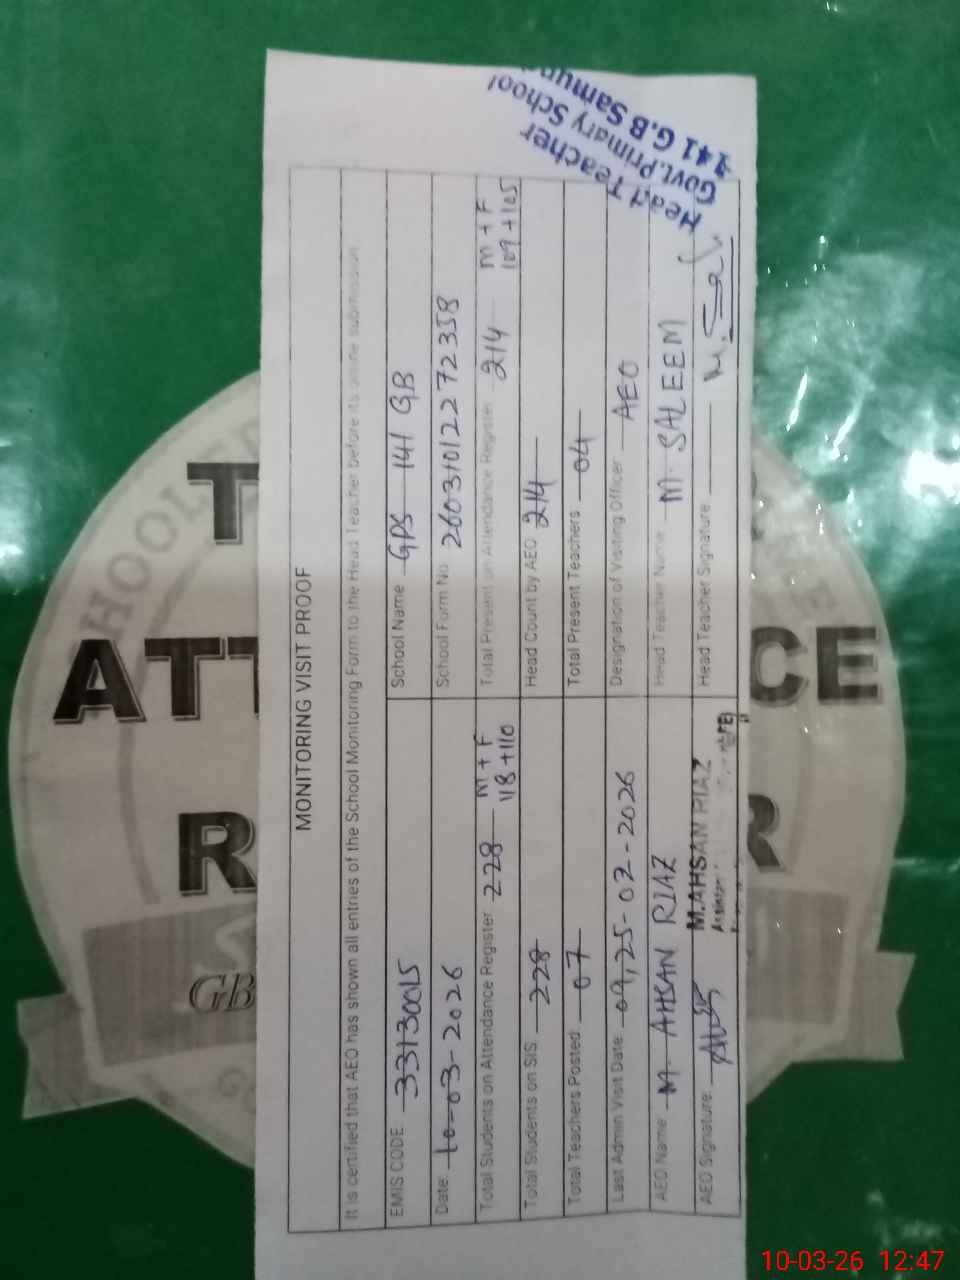 MONITORING VISIT PROOF
It is certified that AEO has shown all entries of the School Monitoring Form to the Head Teacher before its online submission.
EMIS CODE 33130015 School Name GPS 141 GB
Date: 10-03-2026 School Form No 26031012272358
Total Students on Attendance Register 228 M + F 118 + 110 Total Present on Attendance Register 214 M + F 109 + 105
Total Students on SIS 228 Head Count by AEO 214
Total Teachers Posted 07 Total Present Teachers 04
Last Admin Visit Date 09, 25-02-2026 Designation of Visiting Officer AEO
AEO Name M. AHSAN RIAZ Head Teacher Name M. SALEEM
AEO Signature: M.AHSAN RIAZ Head Teacher Signature
Head Teacher
Govt. Primary School
141 G.B
GB
10-03-26 12:47